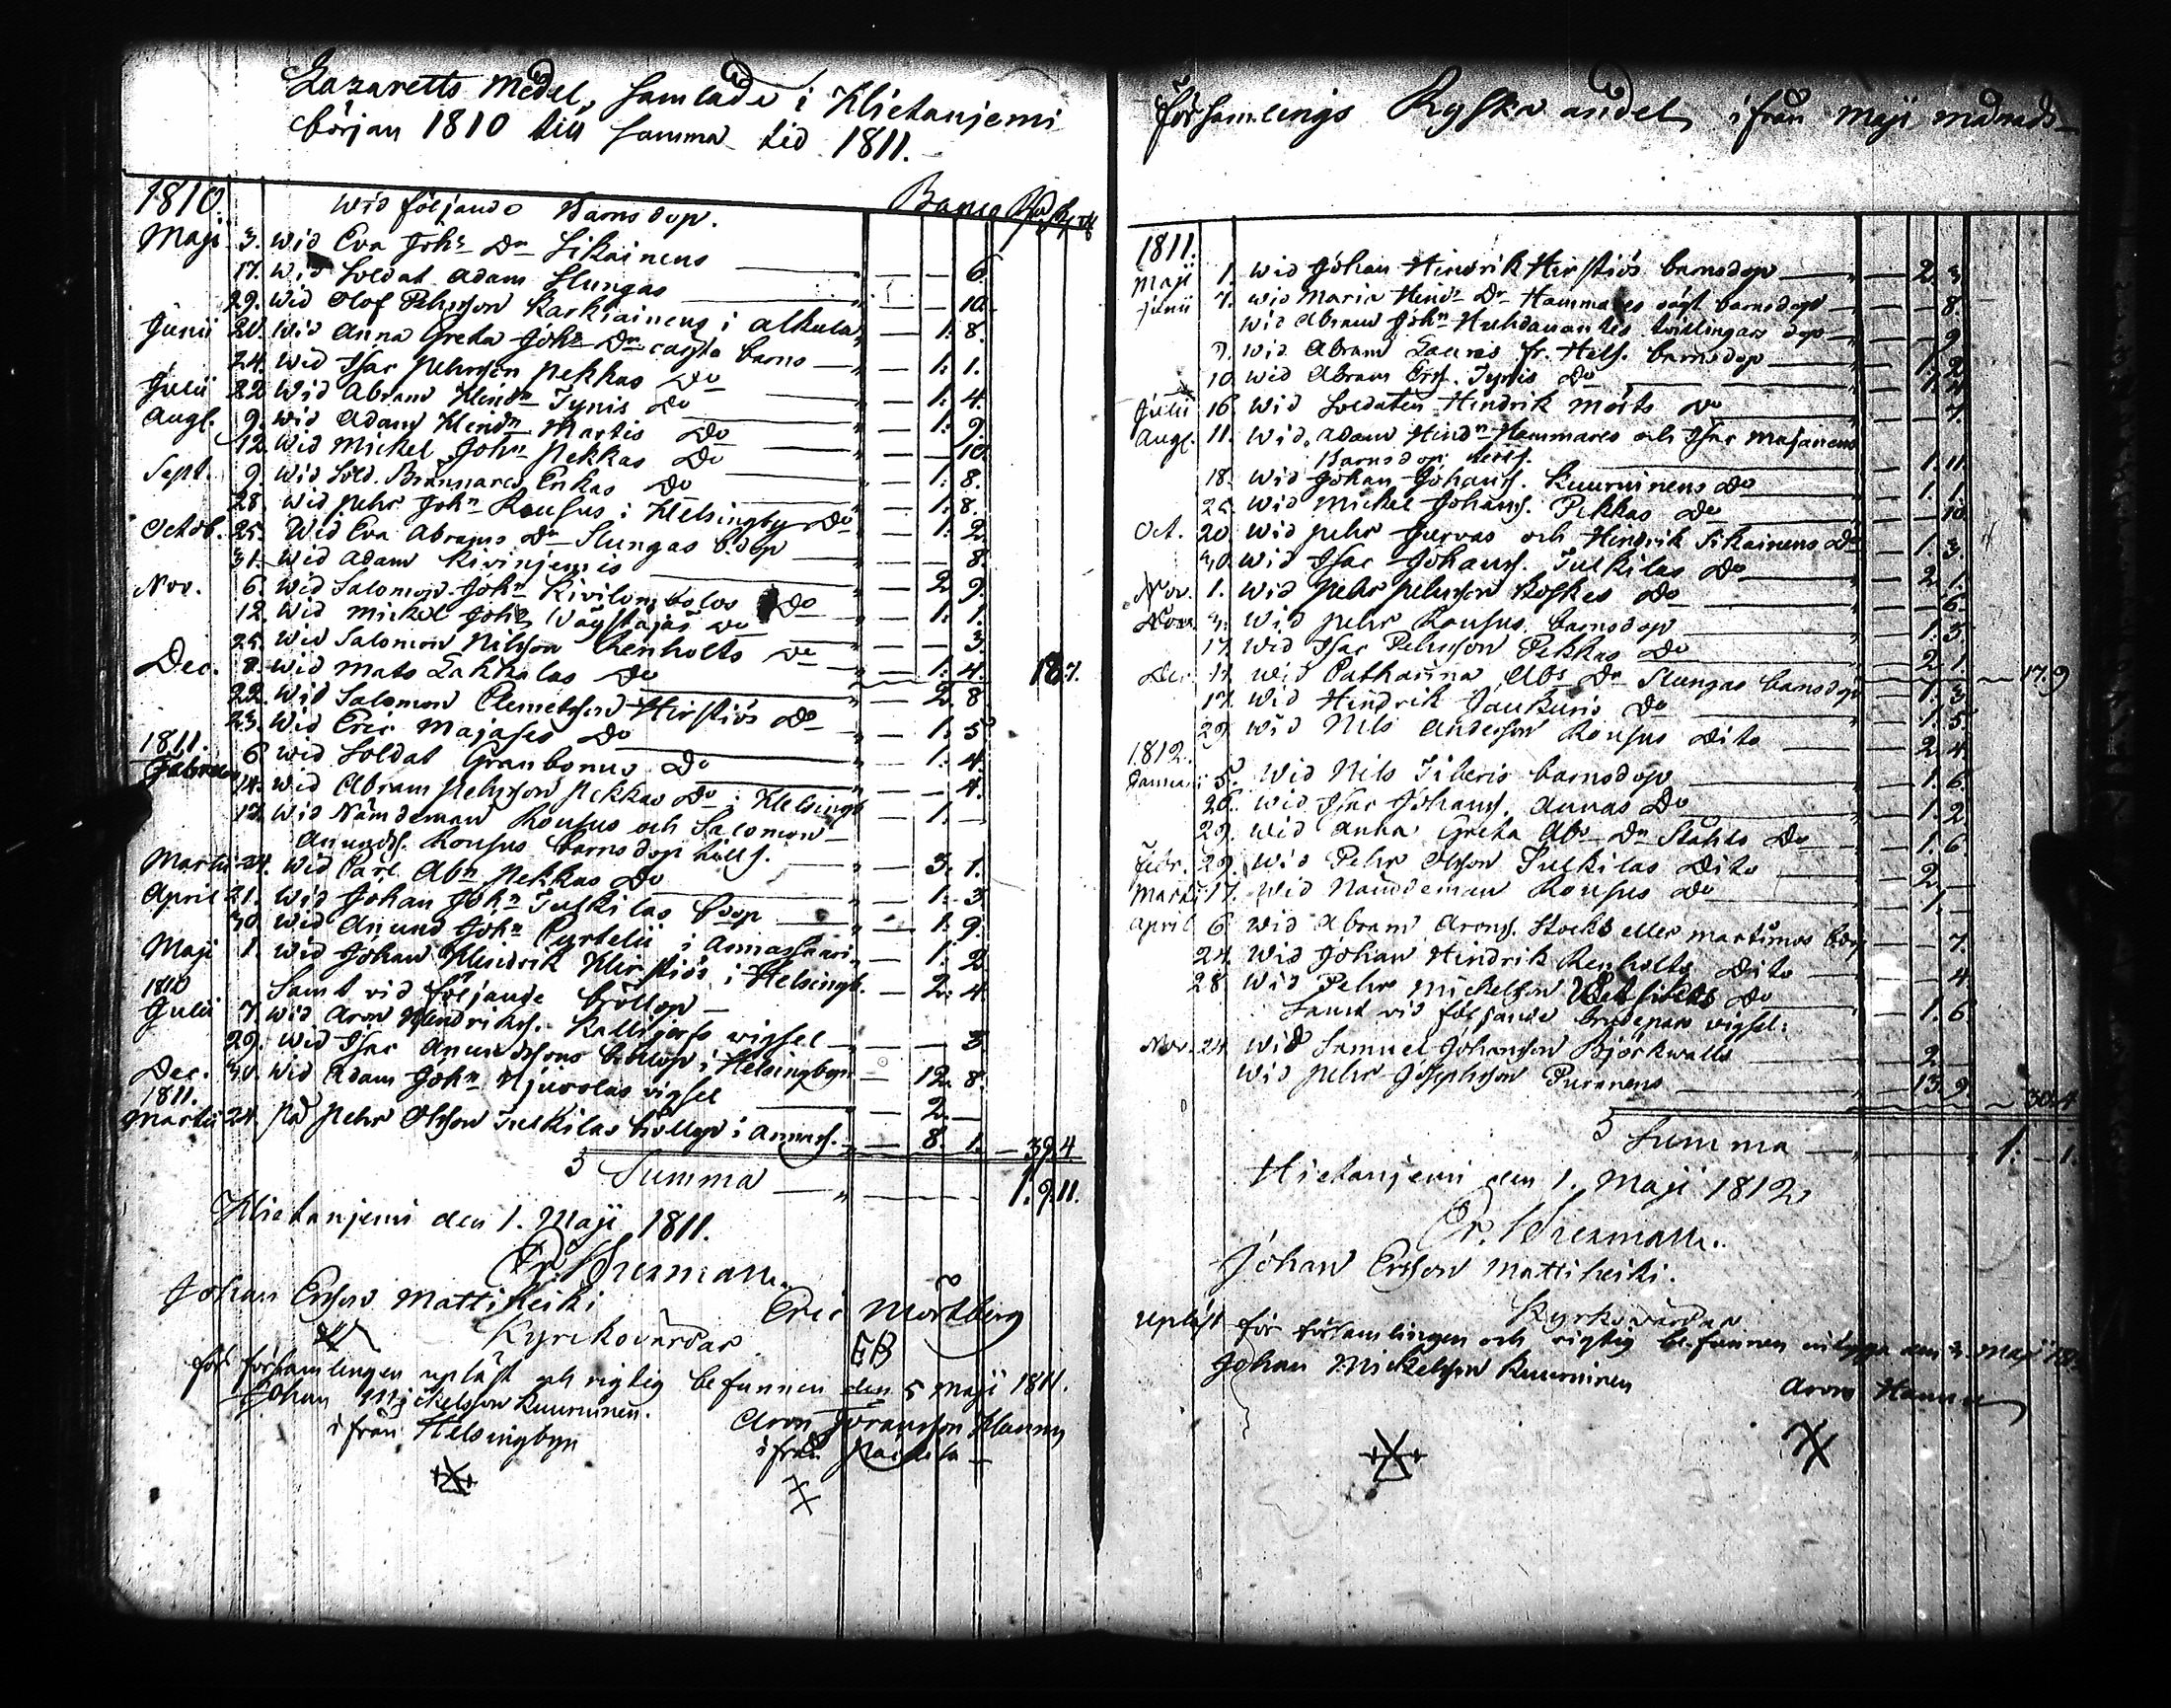 Lazaretts Medel, samlade i Hietanjemi
början 1810 till samma tid 1811.
1810. Wid följande Barnsdop. Banco Rd
Maji 3. Wid Eva Johs Dr Sikainens — 6.
17. Wid Soldat Adam Slungas — 10.
29. Wid Olof Pehrsson Karkiainens i Alkula — 1. 8.
Junii 20. Wid Anna Greta Johs Dr barns — 1. 1.
24. Wid Isac Pehrsson Pekkas Do — 1. 4.
Julii 22. Wid Abram Hindn Tynis Do — 1. 9.
Augl. 9. Wid Adam Hindn Martis Do — 10.
12. Wid Mickel John Pekkas Do — 1. 8.
Sept. 9. Wid Sold. Brännares Enkas Do — 1. 8.
28. Wid Pehr John Rousus i Helsingby Do — 1. 2.
Octob. 25. Wid Eva Abrams Dr Slungas b.dop — 8.
31. Wid Adam Kivinjemis — 2. 9.
Nov. 6. Wid Salomon John Kivilombolos Do — 1. 1.
12. Wid Mickel Johs Do — 3.
25. Wid Salomon Nilsson Renholts Do — 1. 4. 18.7.
Dec. 8. Wid Mats Lakkalas Do — 2. 8
22. Wid Salomon Clemetsson Hirstiös Do — 1. 5
23. Wid Eric Majases Do — 1. 4.
1811. 6 Wid Soldat Granboms Do — 4.
Februar 14. Wid Abram Pehrsson Pekkas Do i Helsingb — 1. —
17. Wid Nämdeman Rousus och Salomon
Anunds. Rousus barnsdop tills. — 3. 1.
Martii 24. Wid Carl Abn Pekkas Do — 1. 3.
April 21. Wid Johan John Tulkilas b.dop — 1. 9.
30. Wid Anund John Pyrtelii i Armassaari — 1. 2
Maji 1. Wid Johan Hindrik Hirstiös i Helsingb. — 2. 4.
1810 Samt vid följande bröllop
Julii 7. Wid Aron Hindrikss. Kallijerfs wigsel — 3.
29. Wid Isac Anundssons bröllop i Helsingbyn — 12. 8.
Dec. 30. Wid Adam John Njuvolas vigsel — 2. —
1811.
Martii 24. På Pehr Olsson Tulkilas bröllop i Armass. — 8. 1. — 39.4
Summa — 1. 9. 11.
Hietanjemi den 1. Maji 1811.
Er. Wiesmann.
Johan Ersson Mattiheiki Eric Mörtberg
Kyrckovärdar EB
för församlingen upläst och rigtig befunnen den 5 Maji 1811.
Johan Mickelsson Kuuruinen. Aron Jöransson Hannu
ifrån Helsingbyn ifrån
församlings Ryska andel, ifrån Maji månads
1811.
Maji 1. Wid Johan Hindrik Hirstiös barnsdop — 2. 3.
Junii 7. Wid Maria Hinds Dr Hammares barnsdop — 8.
Wid Abram John twillingars dop — 9
9. Wid Abram Lauris fr. Hels. barnsdop — 1. 2
10. Wid Abram Ers. Tynis Do — 1. 4.
Julii 16. Wid Soldaten Hindrik Mörts Do — 7.
Augl. 11. Wid Adam Hindn Hammares och Isac Majanens
Barnsdop — 1. 11.
18. Wid Johan Johanss. Kuuruinens Do — 1. 1.
25. Wid Mickel Johanss. Pekkas Do — 10.
Oct. 20 Wid Pehr Jurvas och Hindrik Sikainens Do — 1. 3.
30. Wid Isac Johanss. Tulkilas Do — 2. 1.
Nov. 1. Wid Pehr Pehrsson Koskes Do — 6.
3. Wid Pehr Rousus barnsdop — 1. 5.
17. Wid Isac Pehrsson Pekkas Do — 2. 1.
Dec. 11. Wid Catharina Abs Dr Slungas barnsdop — 1. 3. — 17. 9
17. Wid Hindrik Jaukuris Do — 1. 5.
29. Wid Nils Andersson Rousus Dito — 2. 4.
1812.
5. Wid Nils Tiberis barnsdop — 1. 6.
26. Wid Isac Johanss. Annas Do — 1. 2.
29. Wid Anna Greta Abs Dr Ståhls Do — 1. 6.
Febr. 29. Wid Pehr Olsson Tulkilas Dito — 2. —
Martii 17. Wid Nämdeman Rousus Do — 1. —
April 6. Wid Abram Arons. Stocks eller Martimos bdop — 7.
24. Wid Johan Hindrik Renholts Dito — 4
28. Wid Pehr Mickelsson Do — 1. 6.
Samt vid följande brudepars vigsel:
Nov. 24. Wid Samuel Johansson Björkwalls — 2. —
Wid Pehr Josephsson Puranens — 13. 9. — 30.4
Summa — 1. — 1.
Hietanjemi den 1. Maji 1812
Er. Wiesmann.
Johan Ersson Mattiheiki.
Kyrkovärdar
Upläst för församlingen och rigtig befunnen den 3. Maji
Johan Mickelsson Kuuruinen Aron Hannu